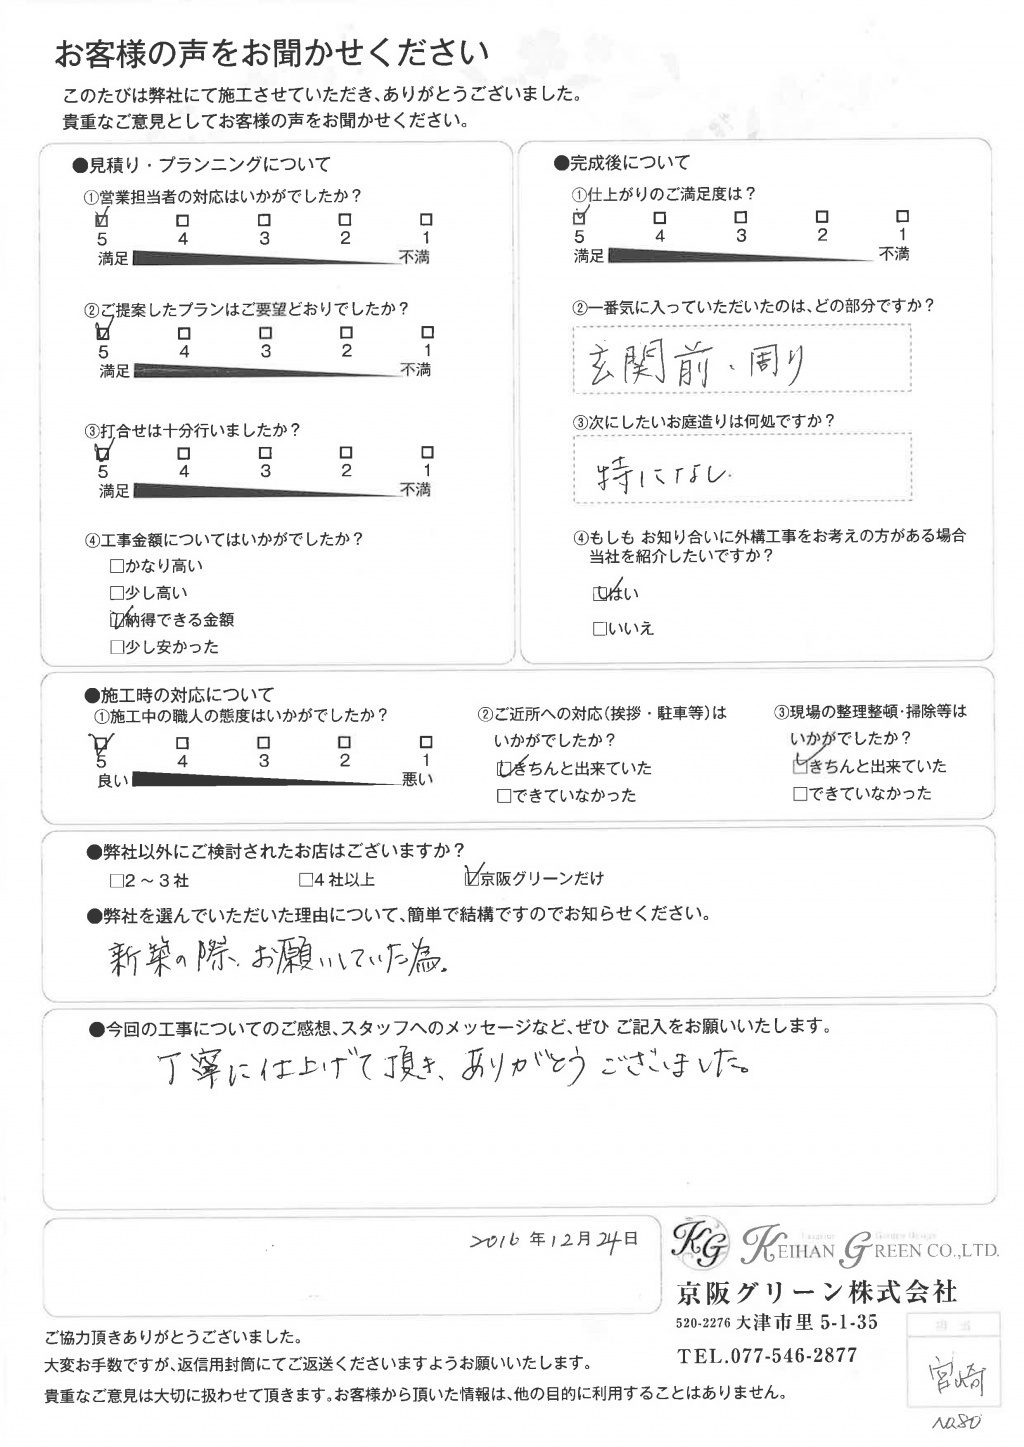 お客様の声をお聞かせください
このたびは弊社にて施工させていただき、ありがとうございました。
貴重なご意見としてお客様の声をお聞かせください。
●見積り・プランニングについて
①営業担当者の対応はいかがでしたか？
5 4 3 2 1
満足 不満
②ご提案したプランはご要望どおりでしたか？
5 4 3 2 1
満足 不満
③打合せは十分行いましたか？
5 4 3 2 1
満足 不満
④工事金額についてはいかがでしたか？
□かなり高い
□少し高い
☑納得できる金額
□少し安かった
●完成後について
①仕上がりのご満足度は？
5 4 3 2 1
満足 不満
②一番気に入っていただいたのは、どの部分ですか？
玄関前、周り
③次にしたいお庭造りは何処ですか？
特になし.
④もしも お知り合いに外構工事をお考えの方がある場合
当社を紹介したいですか？
☑はい
□いいえ
●施工時の対応について
①施工中の職人の態度はいかがでしたか？
5 4 3 2 1
良い 悪い
②ご近所への対応（挨拶・駐車等）は
いかがでしたか？
☑きちんと出来ていた
□できていなかった
③現場の整理整頓・掃除等は
いかがでしたか？
☑きちんと出来ていた
□できていなかった
●弊社以外にご検討されたお店はございますか？
□2～3社 □4社以上 ☑京阪グリーンだけ
●弊社を選んでいただいた理由について、簡単で結構ですのでお知らせください。
新築の際、お願いしていた為.
●今回の工事についてのご感想、スタッフへのメッセージなど、ぜひ ご記入をお願いいたします。
丁寧に仕上げて頂き、ありがとうございました。
2016年12月24日
KG KEIHAN GREEN CO.,LTD.
京阪グリーン株式会社
520-2276 大津市里 5-1-35
TEL.077-546-2877
担当
宮崎
No.80
ご協力頂きありがとうございました。
大変お手数ですが、返信用封筒にてご返送くださいますようお願いいたします。
貴重なご意見は大切に扱わせて頂きます。お客様から頂いた情報は、他の目的に利用することはありません。